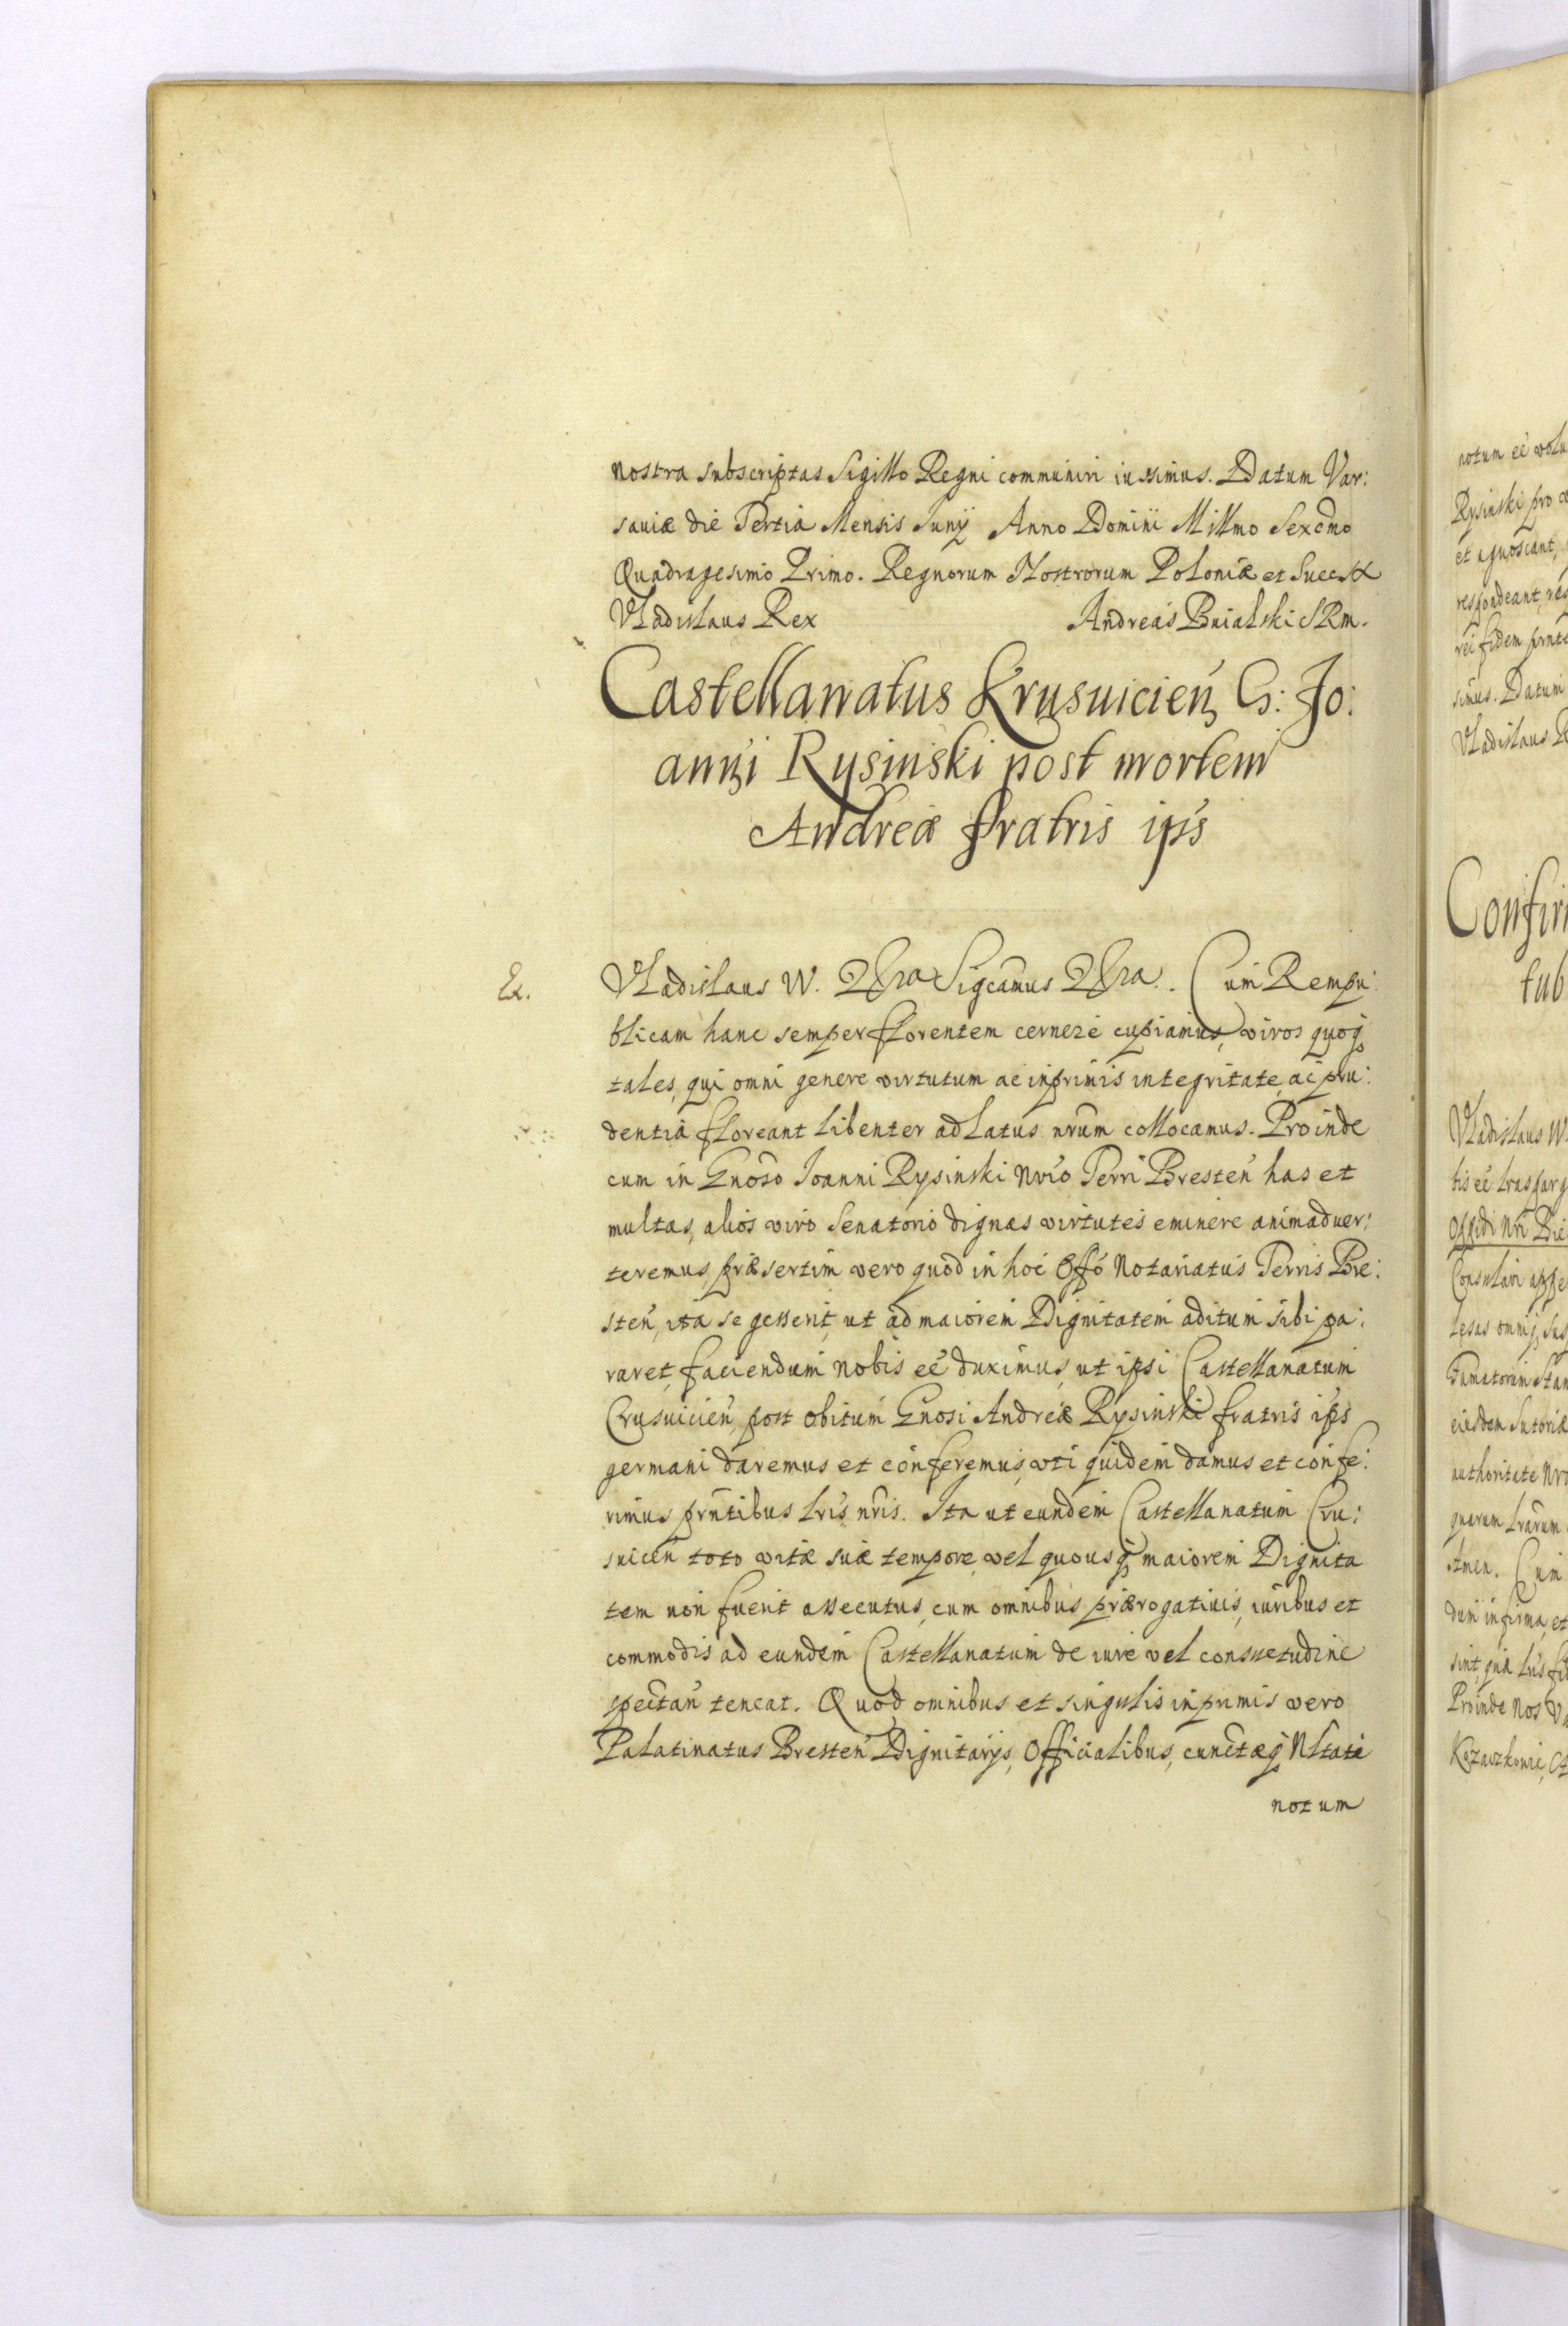 nostra subscriptas Sigillo Regni communiri iussimus. Datum Var:
sauiæ die Tertia Mensis Iunij Anno Domini Millmo Sexcmo
Quadragesimo Primo. Regnorum Nostrorum Poloniæ et Suec
Vladislaus Rex Andreas Buialski SRm.
Castellanatus Krusuicien G: Jo:
anni Rysinski post mortem
Andreæ fratris ips
Ex.
Vladislaus W. Sigcamus. Cum Rempu:
blicam hanc semper florentem cernere cupiamus, viros quoq
tales, qui omni genere virtutum ac inprimis integritate, ac pru:
dentia floreant libenter ad latus nrum collocamus. Proinde
cum in Gnoso Ioanni Rysinski Nrio Terri Bresten has et
multas, alios viro Senatorio dignas virtutes eminere animaduer:
teremus, præsertim vero quod in hoc Offo Notariatus Terris Bre:
sten, ita se gesserit, ut ad maiorem Dignitatem aditum sibi pa:
raret, faciendum nobis eé duximus, ut ipsi Castellanatum
Crusuicien, post obitum Gnosi Andreæ Rysinski fratris ips
germani daremus et conferemus, vti quidem damus et confe:
rimus prntibus lris nris. Ita ut eundem Castellanatum Cru:
suicen toto vitæ suæ tempore, vel quousq maiorem Dignita
tem non fuerit assecutus, cum omnibus prærogatiuis, iuribus et
commodis ad eundem Castellanatum de iure vel consuetudine
spectan teneat. Quod omnibus et singulis inprimis vero
Palatinatus Bresten Dignitarys, Officialibus, cunctæq Nltate
notum
notum eé volu
Rysinski pro
et agnoscant,
respondeant, res
rei fidem prnte
simus. Datum
Vladislaus R
Confir
tub
Vladislaus W.
tis eé lras parg
Oppidi Nri
Consulari appe
lesas omniq sus
Famatorum Stan
eiusdem Sutoriæ
authoritate Nra
quarum lrarum
Amen. Cum
dum infirma, et
sint, qua lus fid
Proinde Nos Va
Kozaczkowie,